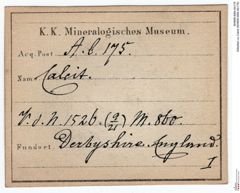 K. K. Mineralogisches Museum.
Acq. Post A. b. 175.
Nam Calcit.
V. d. N. 1526. (2/21) M. 860.
Fundort. Derbyshire, England.
I